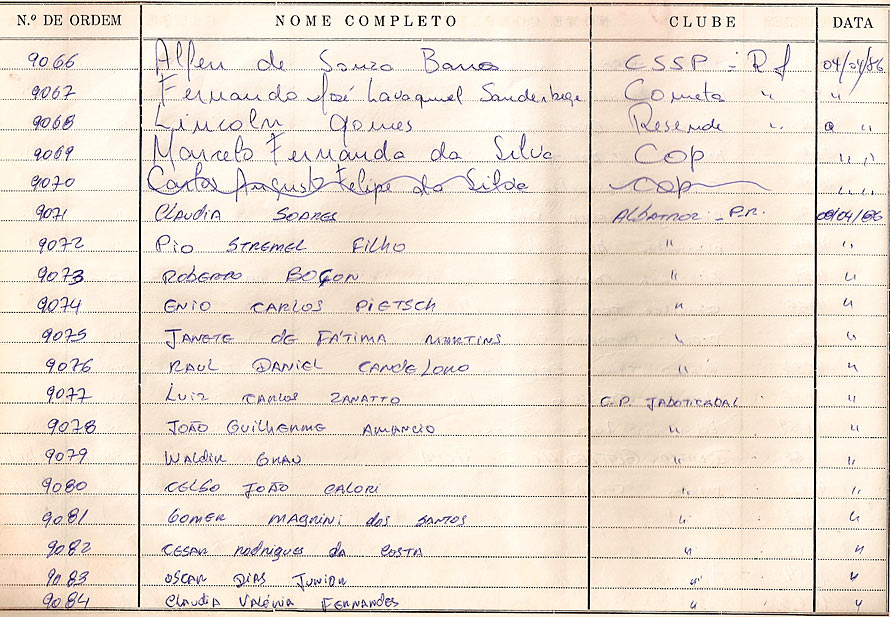 N.º DE ORDEM NOME COMPLETO CLUBE DATA
9066 de Souza CSSP - RJ 04/04/86
9067 Fernando José Cometa " "
9068 Lincoln Gomes Resende " " "
9069 Marcelo Fernando da Silva COP " "
9070 Carlos Augusto Felipe da Silva COP " "
9071 CLAUDIA SOARES ALBATROZ - PR. 08/04/86
9072 PIO STREMEL FILHO " "
9073 ROBERTO " "
9074 ENIO CARLOS PIETSCH " "
9075 JANETE DE FÁTIMA MARTINS " "
9076 RAUL DANIEL " "
9077 LUIZ CARLOS ZANATTO C.P. JABOTICABAL "
9078 JOÃO GUILHERME AMANCIO " "
9079 WALDIR GRAU " "
9080 CELSO JOÃO CALORI " "
9081 GOMER MAGRINI dos SANTOS " "
9082 CESAR Rodrigues da COSTA " "
9083 OSCAR DIAS JUNIOR " "
9084 Claudia Valéria FERNANDES " "